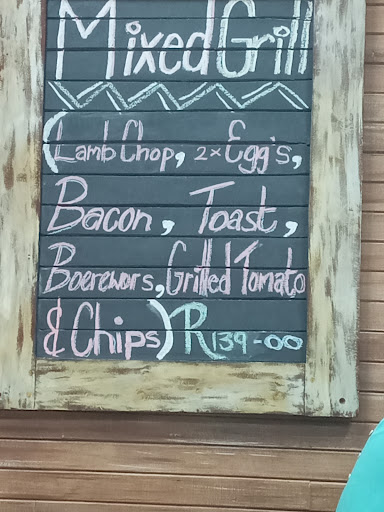 Mixed Grill
(Lamb Chop, 2x Egg's,
Bacon, Toast,
Boerewors, Grilled Tomato
& Chips) R139-00